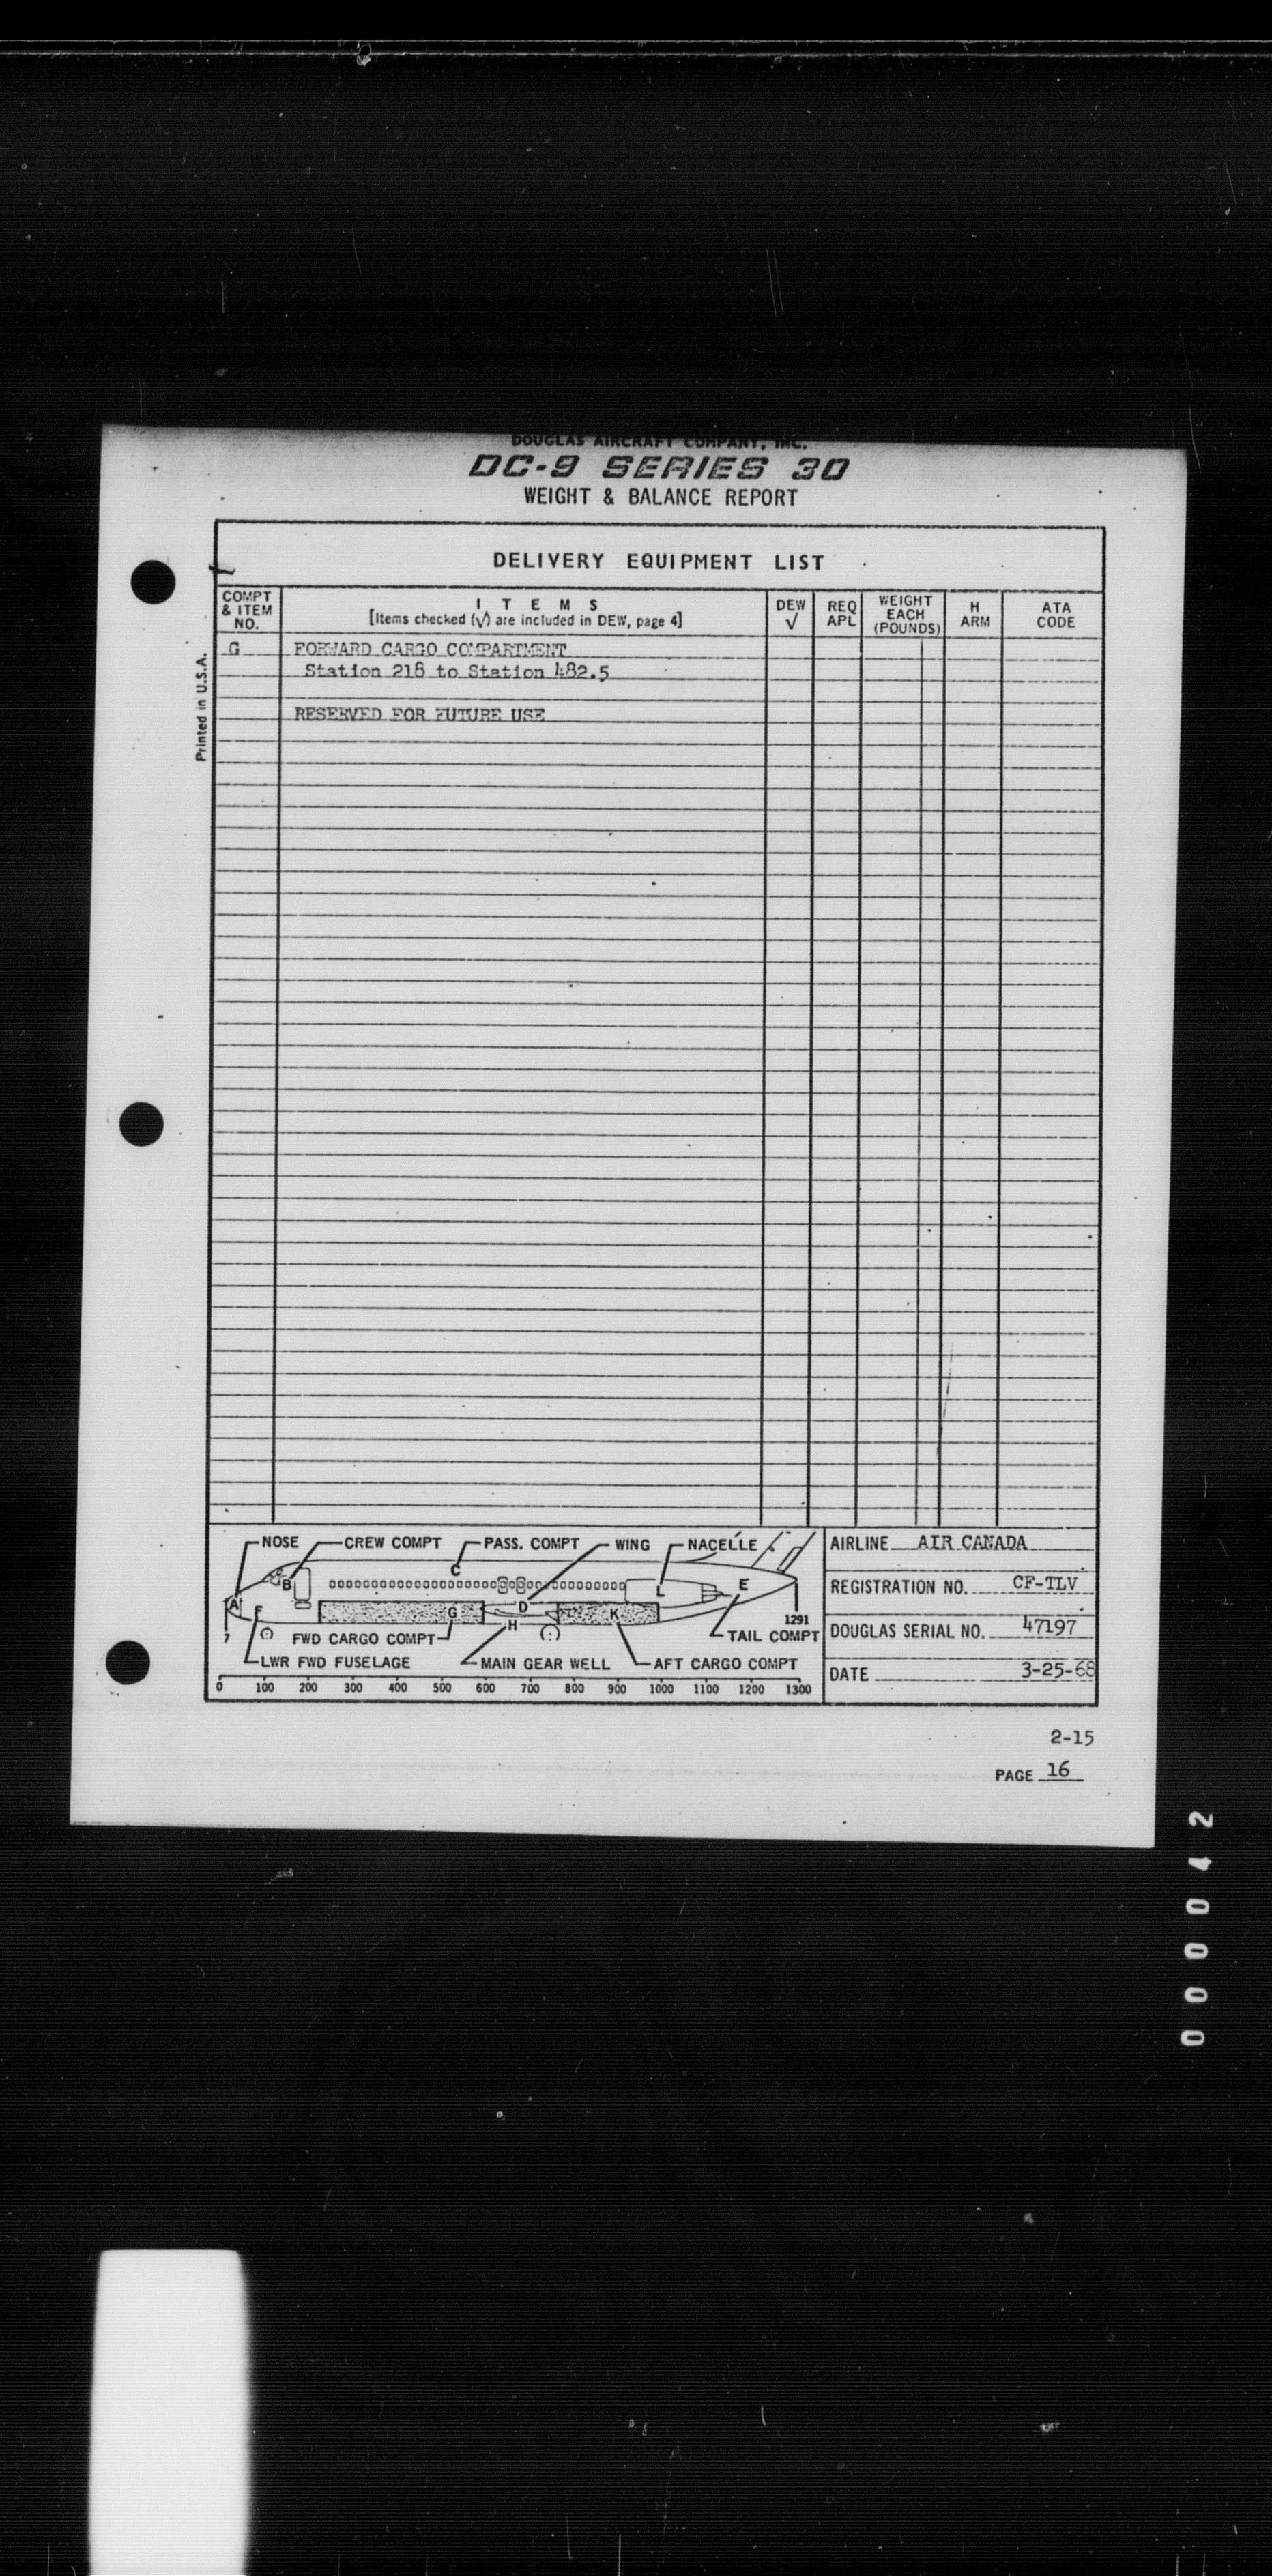 DOUGLAS AIRCRAFT COMPANY, INC.
DC-9 SERIES 30
WEIGHT & BALANCE REPORT
DELIVERY EQUIPMENT LIST
COMPT & ITEM NO.
I T E M S
[Items checked (√) are included in DEW, page 4]
DEW √
REQ APL
WEIGHT EACH (POUNDS)
H ARM
ATA CODE
G FORWARD CARGO COMPARTMENT
Station 218 to Station 482.5
RESERVED FOR FUTURE USE
Printed in U.S.A.
NOSE CREW COMPT PASS. COMPT WING NACELLE
C
B
A F G D H K L E
7
1291
FWD CARGO COMPT
TAIL COMPT
LWR FWD FUSELAGE MAIN GEAR WELL AFT CARGO COMPT
0 100 200 300 400 500 600 700 800 900 1000 1100 1200 1300
AIRLINE AIR CANADA
REGISTRATION NO. CF-TLV
DOUGLAS SERIAL NO. 47197
DATE 3-25-68
2-15
PAGE 16
000042